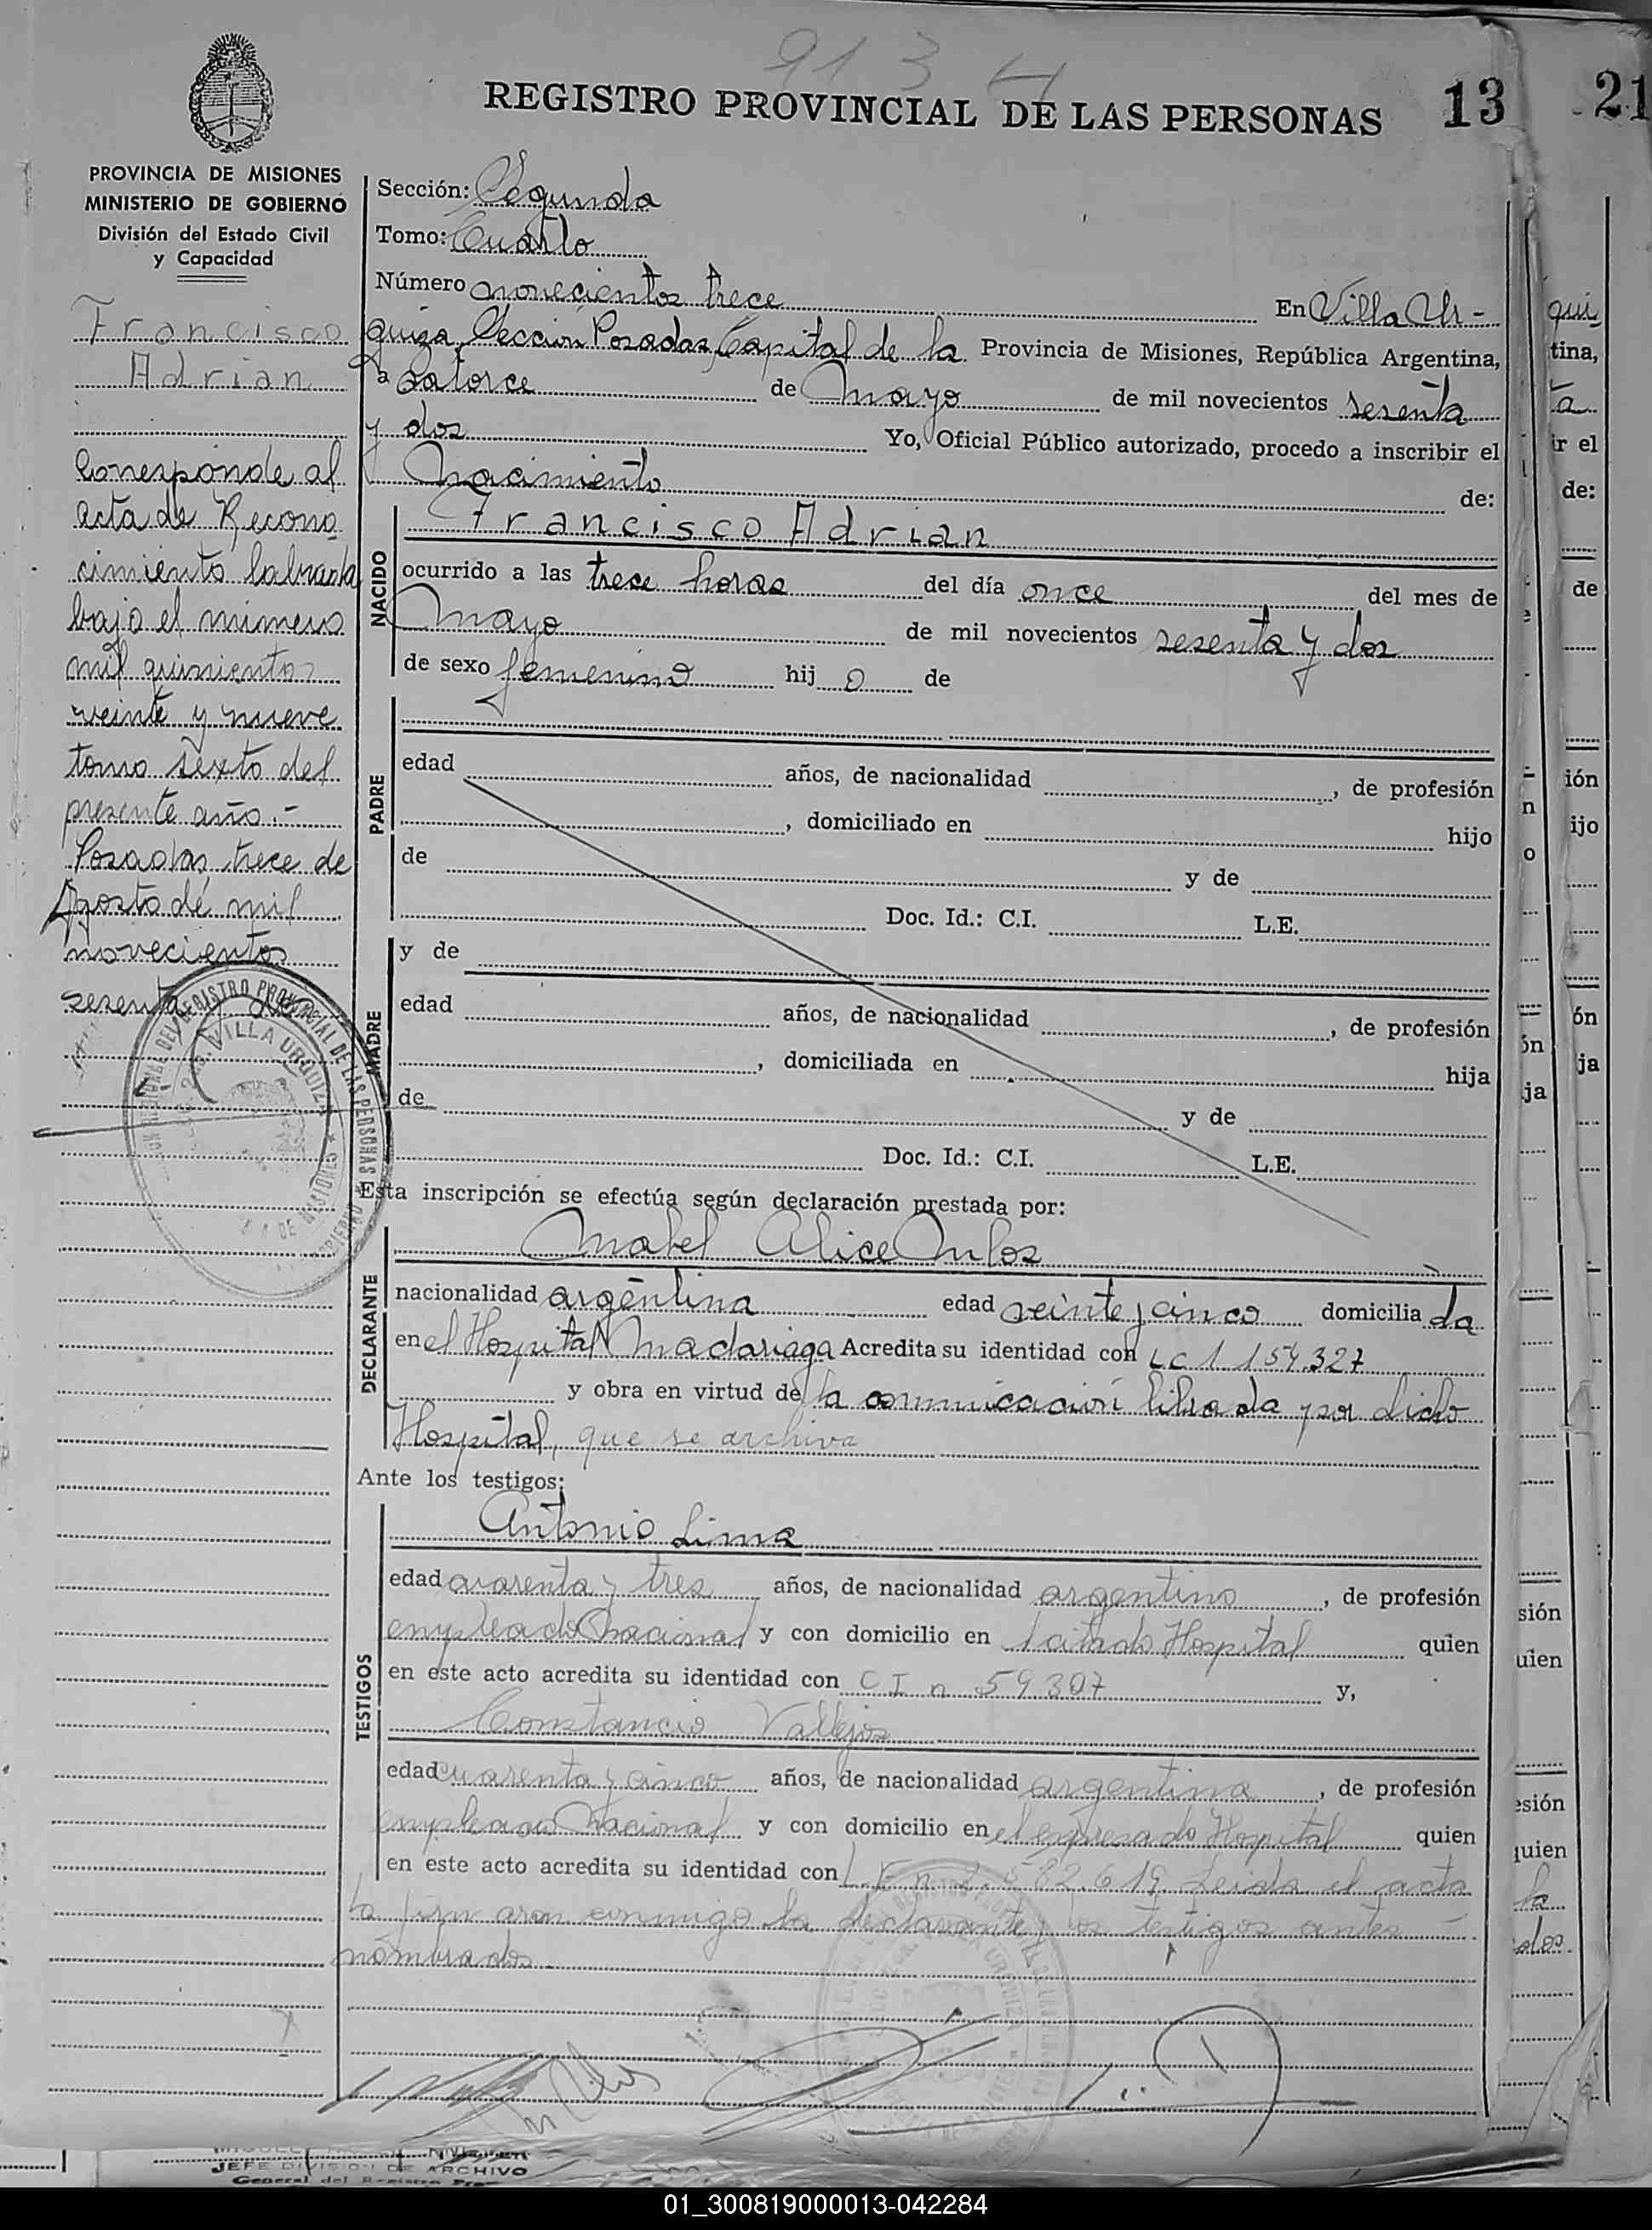 913
REGISTRO PROVINCIAL DE LAS PERSONAS 13
21
PROVINCIA DE MISIONES
MINISTERIO DE GOBIERNO
División del Estado Civil
y Capacidad
Francisco
Adrian
Corresponde al
acta de Recono
cimiento labrada
bajo el número
mil quinientos
veinte y nueve
tomo sexto del
presente año.-
Posadas, trece de
Agosto de mil
novecientos
sesenta y dos
Sección: Segunda
Tomo: Cuarto
Número novecientos trece En Villa Ur-
quiza, Sección Posadas, Capital de la Provincia de Misiones, República Argentina,
a catorce de Mayo de mil novecientos sesenta
y dos Yo, Oficial Público autorizado, procedo a inscribir el
Nacimiento de:
NACIDO
Francisco Adrian
ocurrido a las trece horas del día once del mes de
Mayo de mil novecientos sesenta y dos
de sexo femenino hij o de
PADRE
edad años, de nacionalidad , de profesión
, domiciliado en hijo
de y de
Doc. Id.: C.I. L.E.
MADRE
y de
edad años, de nacionalidad , de profesión
, domiciliada en hija
de y de
Doc. Id.: C.I. L.E.
Esta inscripción se efectúa según declaración prestada por:
DECLARANTE
Mabel Alice
nacionalidad argentina edad veinte y cinco domicilia da
en el Hospital Madariaga Acredita su identidad con LC 1.154.327
y obra en virtud de la comunicación librada por dicho
Hospital, que se archiva
Ante los testigos:
TESTIGOS
Antonio Lima
edad cuarenta y tres años, de nacionalidad argentino, de profesión
empleado Nacional y con domicilio en citado Hospital quien
en este acto acredita su identidad con C I n 59307 y,
Constancio Vallejos
edad cuarenta y cinco años, de nacionalidad argentina, de profesión
empleado Nacional y con domicilio en el expresado Hospital quien
en este acto acredita su identidad con L.E n 2.582.619 Leida el acta
la firmaron conmigo la declarante y los testigos antes
nombrados.-
VILLA URQUIZA
JEFE DIVISION DE ARCHIVO
01_300819000013-042284